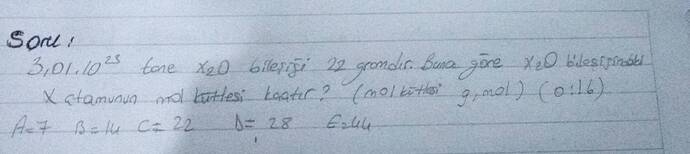 Soru:
3,01.10²³ tane X₂O bileşiği 22 gramdır. Buna göre X₂O bileşiğindeki
X atomunun mol kütlesi kaçtır? (mol kütlesi g,mol) (O:16)
A=7 B=14 C=22 D=28 E=44